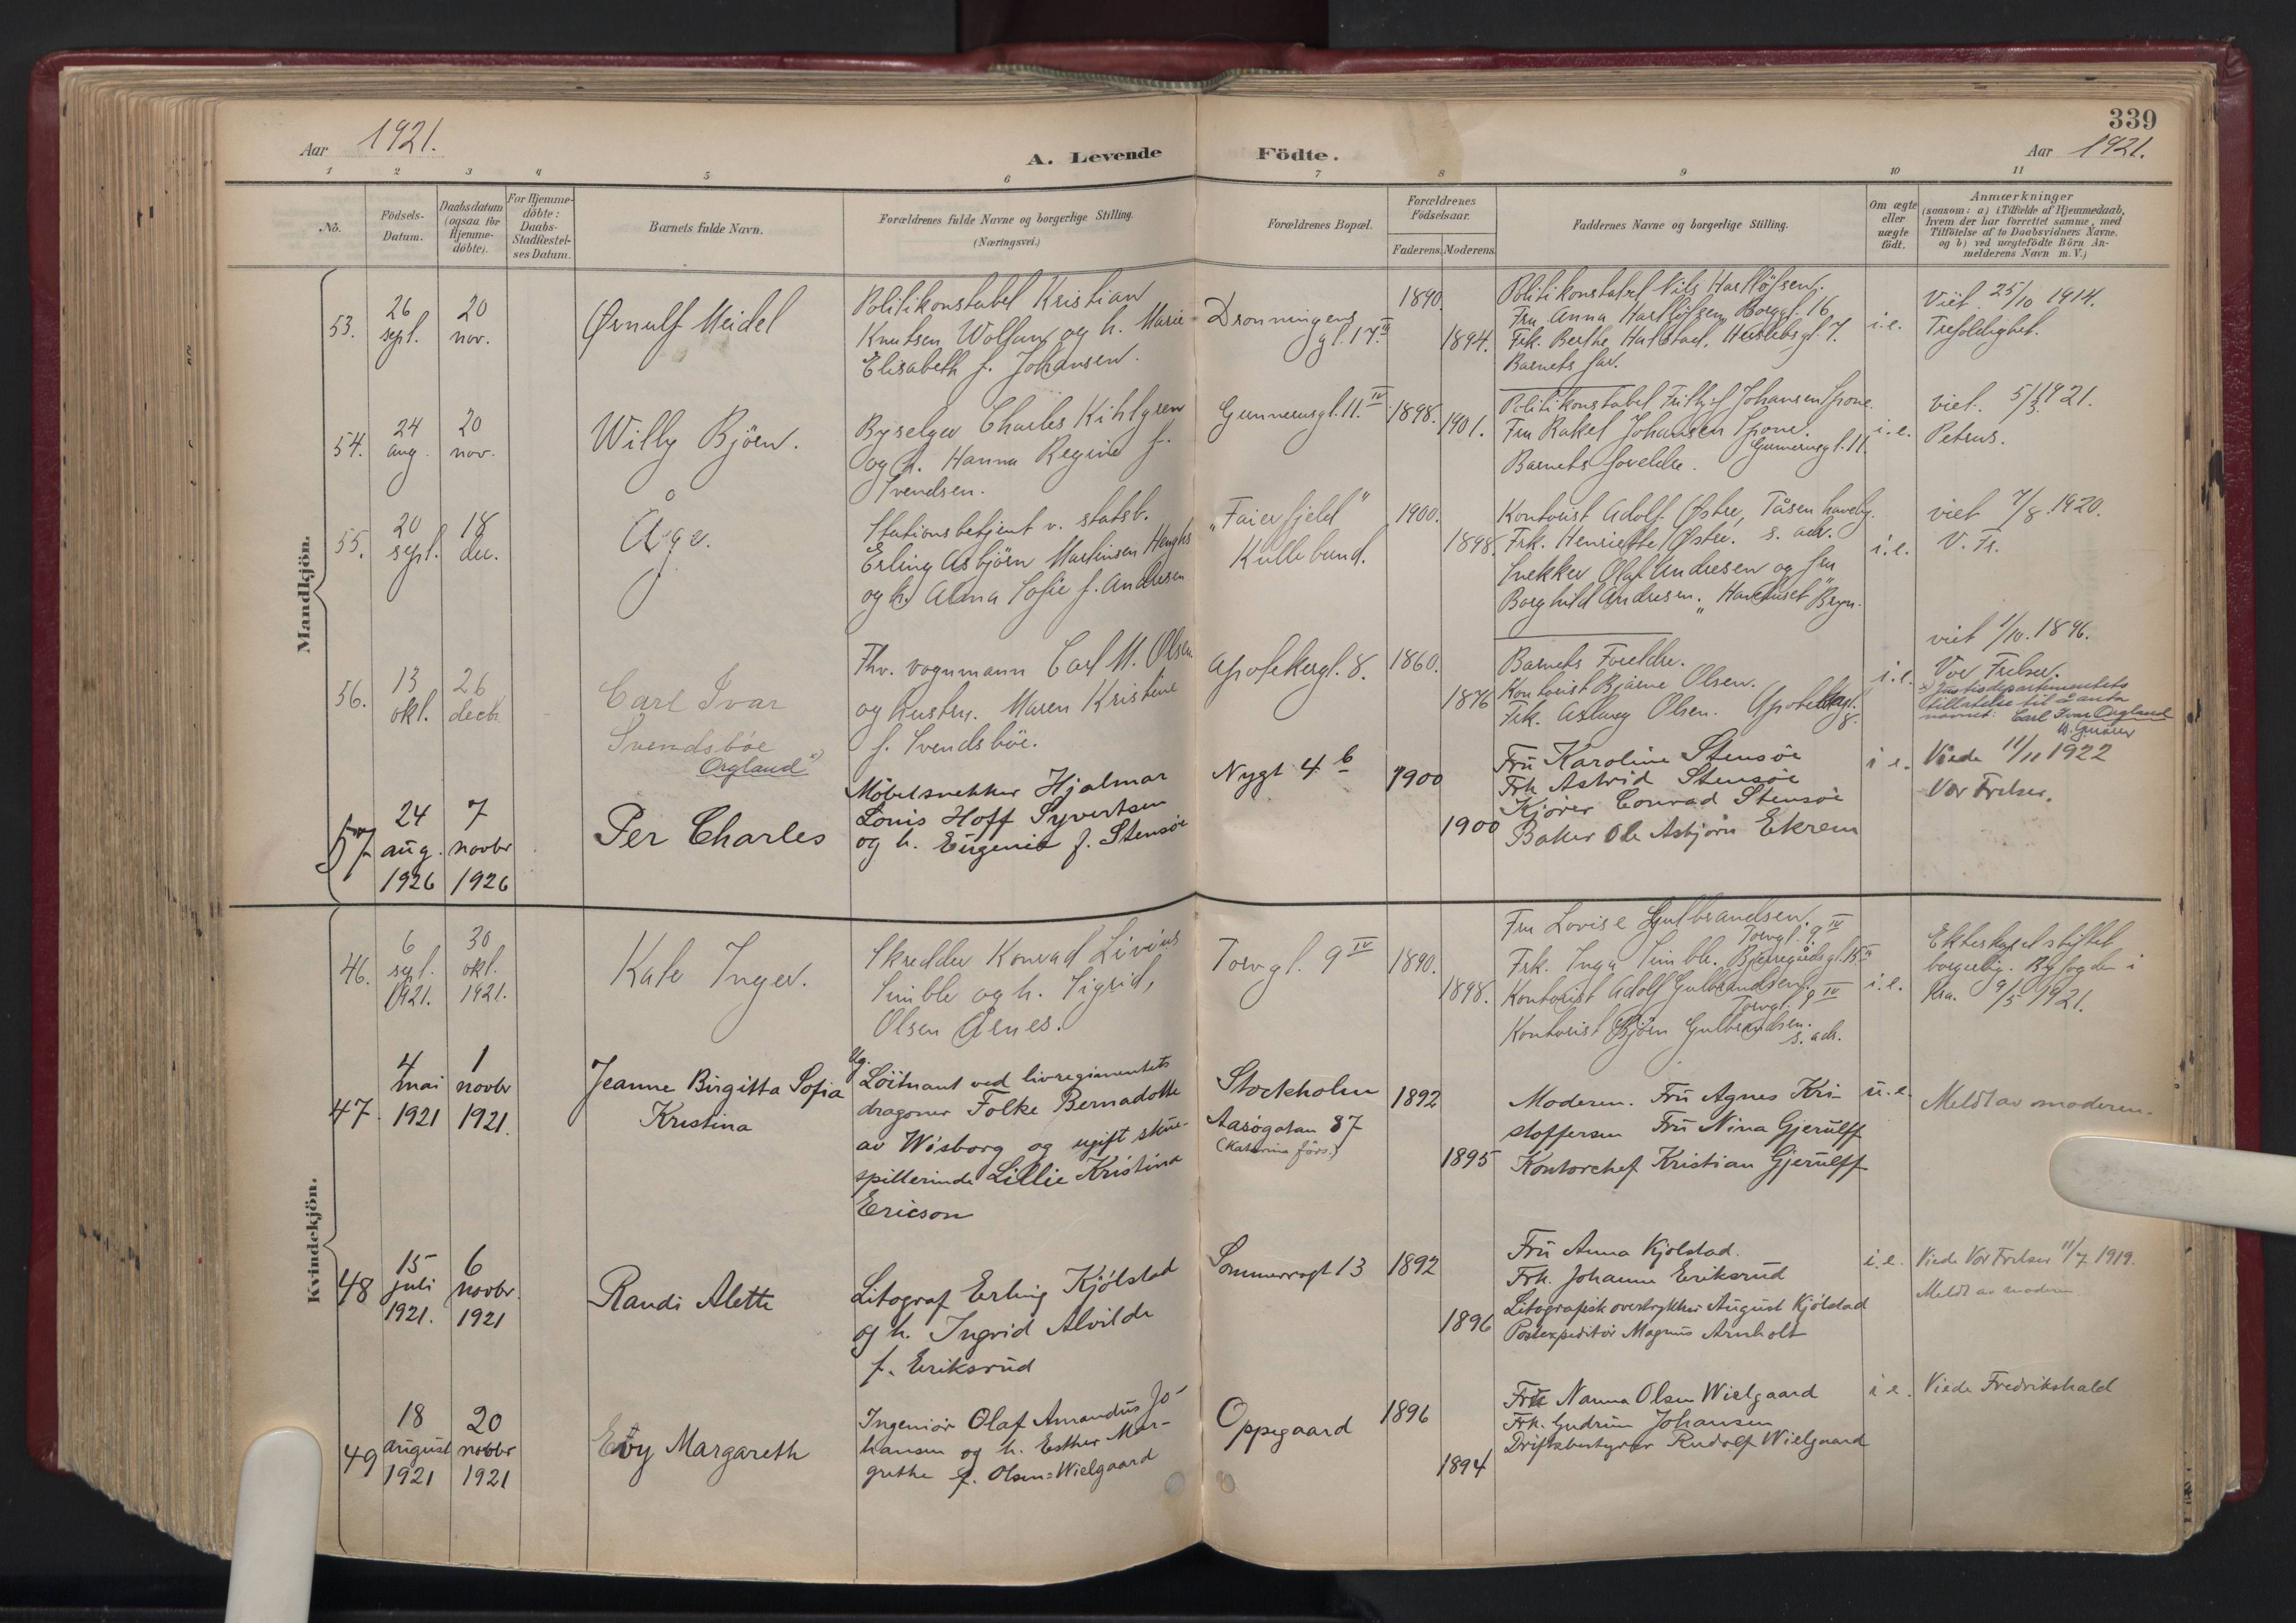 339
Aar 1921.
A. Levende Födte.
Aar 1921.
1 2 3 4 5 6 7 8 9 10 11
No.
Födsels-
Datum.
Daabsdatum
(ogsaa for
Hjemme-
döbte).
For Hjemme-
döbte:
Daabs-
Stadfæstel-
ses Datum.
Barnets fulde Navn.
Forældrenes fulde Navne og borgerlige Stilling.
(Næringsvei.)
Forældrenes Bopæl.
Forældrenes
Födselsaar.
Faderens.
Moderens.
Faddernes Navne og borgerlige Stilling.
Om ægte
eller
uægte
födt.
Anmærkninger
(saasom: a) i Tilfælde af Hjemmedaab,
hvem der har forrettet samme, med
Tilföielse af to Daabsvidners Navne.
og b) ved uægtefödte Börn An-
melderens Navn m. V.)
Mandkjön.
53.
26
sept.
20
nov.
Ørnulf Meidel
Politikonstabel Kristian
Knutsen Wollan og h. Marie
Elisabeth f. Johansen.
Dronningens
gt. 17 III
1890.
1894.
Politikonstabel Nils
Fru Anna Borggt. 16
Frk. Berthe Halstad, Heslebsgt. 7.
Barnets far.
i.e.
Viet 25/10 1914.
Trefoldighet.
54.
24
aug.
20
nov.
Willy Björn.
Byselger Charles Kihlgren
og h. Hanna Regine f.
Svendsen.
Gunnerusgt. 11. IV
1898.
1901.
Politikonstabel Frithjof Johansen
Fru Rakel Johansen
Gunnerusgt. 11.
Barnets foreldre.
i.e.
viet. 5/3 1921.
Petrus.
55.
20
sept.
18
des.
Åge.
Stationsbetjent v. statsb.
Erling Asbjörn Martinsen
og h. Alma Sofie f. Andresen
"Faierfjeld"
Kullebund.
1900.
1898.
Kontorist Adolf Østre, Tåsen haveby.
Frk. Henriette Østre. s. adr.
Snekker Olaf Andresen og fru
Borghild Andresen. "Havehuset" Bryn.
i.e.
viet 7/8 1920.
V. Fr.
56.
13
okt.
26
decb.
Carl Ivar
Svendsbøe
Orgland x)
Fhv. vognmann Carl M. Olsen
og hustru. Maren Kristine
f. Svendsböe.
Apotekergt. 8.
1860.
1876
Barnets Foreldre.
Kontorist Bjarne Olsen.
Frk. Aslaug Olsen. Apotekergt.
8.
i.e.
viet 1/10. 1896.
Vor Frelser.
x) Justisdepartementets
tillatelse til å anta
navnet: Carl Ivar Orgland
57
24
aug.
1926
7
novbr
1926
Per Charles
Møbelsnekker Hjalmar
Louis Hoff Syvertsen
og h. Eugenie f. Stensøe
Nygt 4 b
1900
1900
Fru Karoline Stensøe
Frk Astrid Stensøe
Kjører Conrad Stensøe
Baker Ole Asbjørn Ekrem
i e.
Viede 11/11 1922
Vor Frelser.
Kvindekjön.
46.
6
sept.
1921.
30
okt.
1921.
Kate Inger.
Skredder Konrad Livius
Simble og h. Sigrid,
Olsen Årnes.
Torvgt. 9 IV
1890.
1898.
Fru Lovise Gulbrandsen.
Torvgt. 9 IV
Frk. Inga Simble. Bjerregårdsgt. 15 II
Kontorist Adolf Gulbrandsen.
Torvgt. 9 IV
Kontorist Bjørn Gulbrandsen.
s. adr.
i.e.
Ekteskapet stiftet
borgerlig. Byfogden i
Kra. 9/5 1921.
47
4
mai
1921
1
novbr
1921.
Jeanne Birgitta Sofia
Kristina
Ug.
Löitnant ved livregimentets
dragoner Folke Bernadotte
av Wisborg og ugift skue-
spillerinde Lillie Kristina
Ericson
Stockholm
Aasøgatan 87
(Katarina förs.)
1892
1895
Moderen. Fru Agnes Kri-
stoffersen Fru Nina Gjerulff
Kontorchef Kristian Gjerulff
u.e.
Meldt av moderen.
48
15
juli
1921.
6
novbr.
1921
Randi Alette
Litograf Erling Kjölstad
og h. Ingrid Alvilde
f. Eriksrud
Sommerrogt 13
1892
1896
Fru Anna Kjölstad.
Frk. Johanne Eriksrud
Litografisk overtrykker August Kjölstad
Postexpeditör Magnus Arnholt
i.e.
Viede Vor Frelser 11/7 1919.
Meldt av moderen
49
18
august
1921
20
novbr
1921
Evy Margareth
Ingeniør Olaf Amandus Jo-
hansen og h. Esther Mar-
grethe f. Olsen=Wielgaard
Oppegaard
1896
1894
Fru Nanna Olsen Wielgaard
Frk. Gudrun Johansen
Driftsbestyrer Rudolf Wielgaard
i e.
Viede Fredrikshald